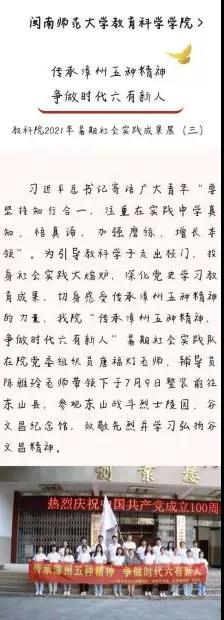 闽南师范大学教育科学学院>
传承漳州五种精神
争做时代六有新人
教科院2021年暑期社会实践成果展（三）
习近平总书记寄语广大青年“要
坚持知行合一，注重在实践中学真
知、悟真谛，加强磨练、增长本
领”。为引导教科学子走出校门，投
身社会实践大熔炉，深化党史学习教
育成果，切身感受传承漳州五种精神
的力量，我院“传承漳州五种精神，
争做时代六有新人”暑期社会实践队
在院党委组织员唐福灯老师、辅导员
陈雅玲老师带领下于7月9日整装前往
东山县，参观东山战斗烈士陵园、谷
文昌纪念馆，致敬先烈并学习弘扬谷
文昌精神。
热烈庆祝中国共产党成立100周
传承漳州五种精神 争做时代六有新人